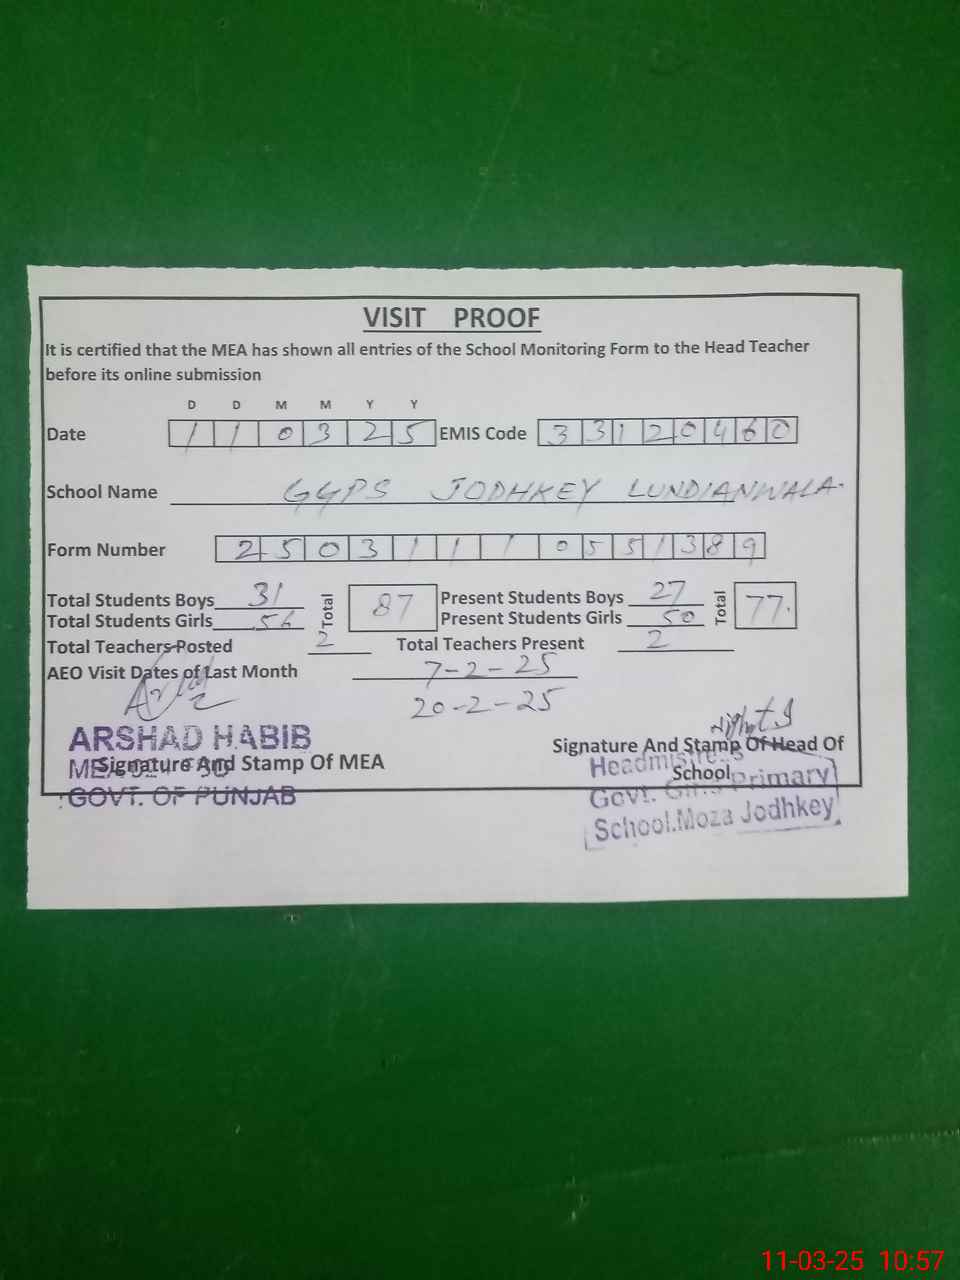 VISIT PROOF
It is certified that the MEA has shown all entries of the School Monitoring Form to the Head Teacher
before its online submission
D D M M Y Y
Date 1 1 0 3 2 5 EMIS Code 3 3 1 2 0 4 6 0
School Name GGPS JODHKEY LUNDIANWALA.
Form Number 2 5 0 3 1 1 1 0 5 5 1 3 8 9
Total Students Boys 31 Total 87 Present Students Boys 27 Total 77.
Total Students Girls 56 Present Students Girls 50
Total Teachers Posted 2 Total Teachers Present 2
AEO Visit Dates of Last Month 7-2-25
20-2-25
ARSHAD HABIB
Signature And Stamp Of MEA
MEA
GOVT. OF PUNJAB
Signature And Stamp Of Head Of
School
Headmistress
Govt. Girls Primary
School.Moza Jodhkey
11-03-25 10:57